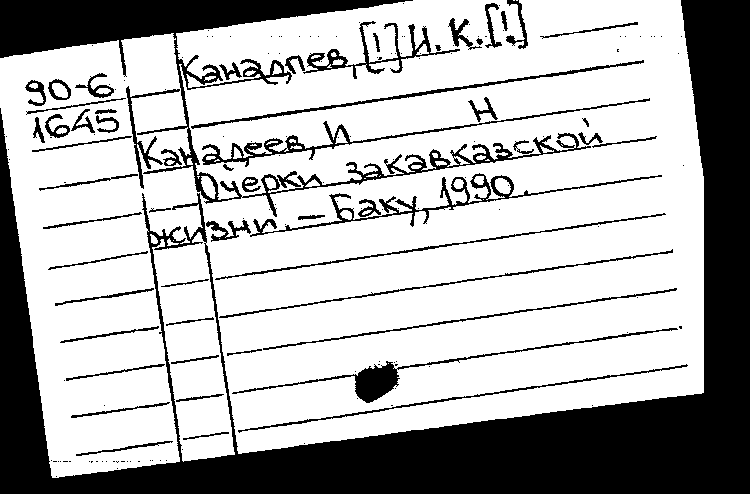 90-6
1645
Канадпев, [!] И. К. [!]
Н
Канадеев, И
Очерки закавказской
жизни. – Баку, 1990.